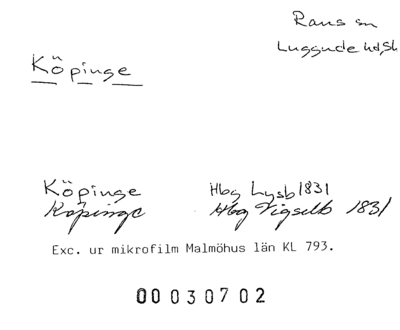 Raus sn
Luggude hd, Sk
Köpinge
Köpinge Hbg Lysb 1831
Köpinge Hbg Vigselb 1831
Exc. ur mikrofilm Malmöhus län KL 793.
00030702